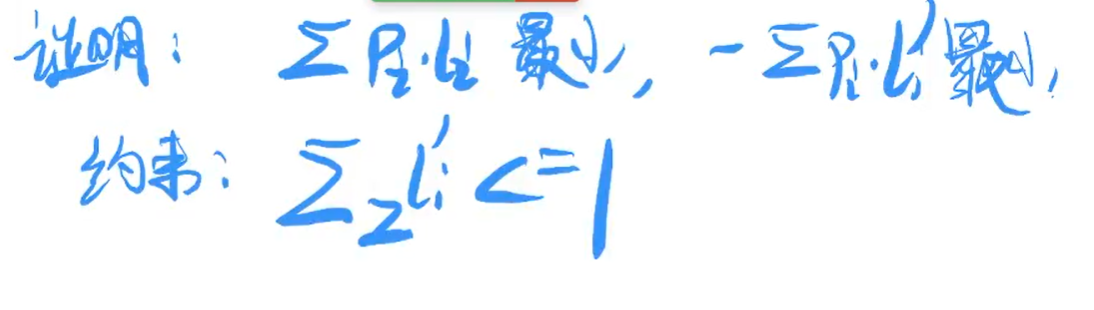 证明： Σ Pᵢ·lᵢ 最小, - Σ Pᵢ·lᵢ' 最小,
约束： Σ 2^lᵢ' <= 1